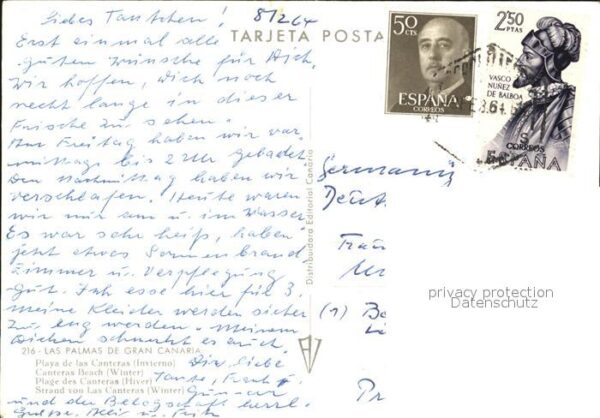 Liebes Tantchen! 8/2 64
Erst einmal alle
guten Wünsche für Dich,
wir hoffen, Dich noch
recht lange in dieser
Frische zu sehen.
Am Freitag haben wir vor-
mittags bis 2 Uhr gebadet
Den Nachmittag haben wir
verschlafen. Heute waren
wir nur am u. im Wasser
Es war sehr heiß, haben
jetzt etwas Sonnenbrand,
Zimmer u. Verpflegung
gut. Ich esse hier für 3.
Meine Kleider werden sicher
zu eng werden. Meinem
Dicken schmeckt es auch.
Dir, liebe
Tante,
und der Belegschaft herzl.
Grüße. u. Fritz
TARJETA POSTA
50
CTS
ESPAÑA
CORREOS
2'50
PTAS
VASCO
NUÑEZ
DE BALBOA
CORREOS
ESPAÑA
64
Germany
Distribuidora Editorial Canaria
(1)
privacy protection
Datenschutz
216 - LAS PALMAS DE GRAN CANARIA
Playa de las Canteras (Invierno)
Canteras Beach (Winter)
Plage des Canteras (Hiver)
Strand von Las Canteras (Winter)